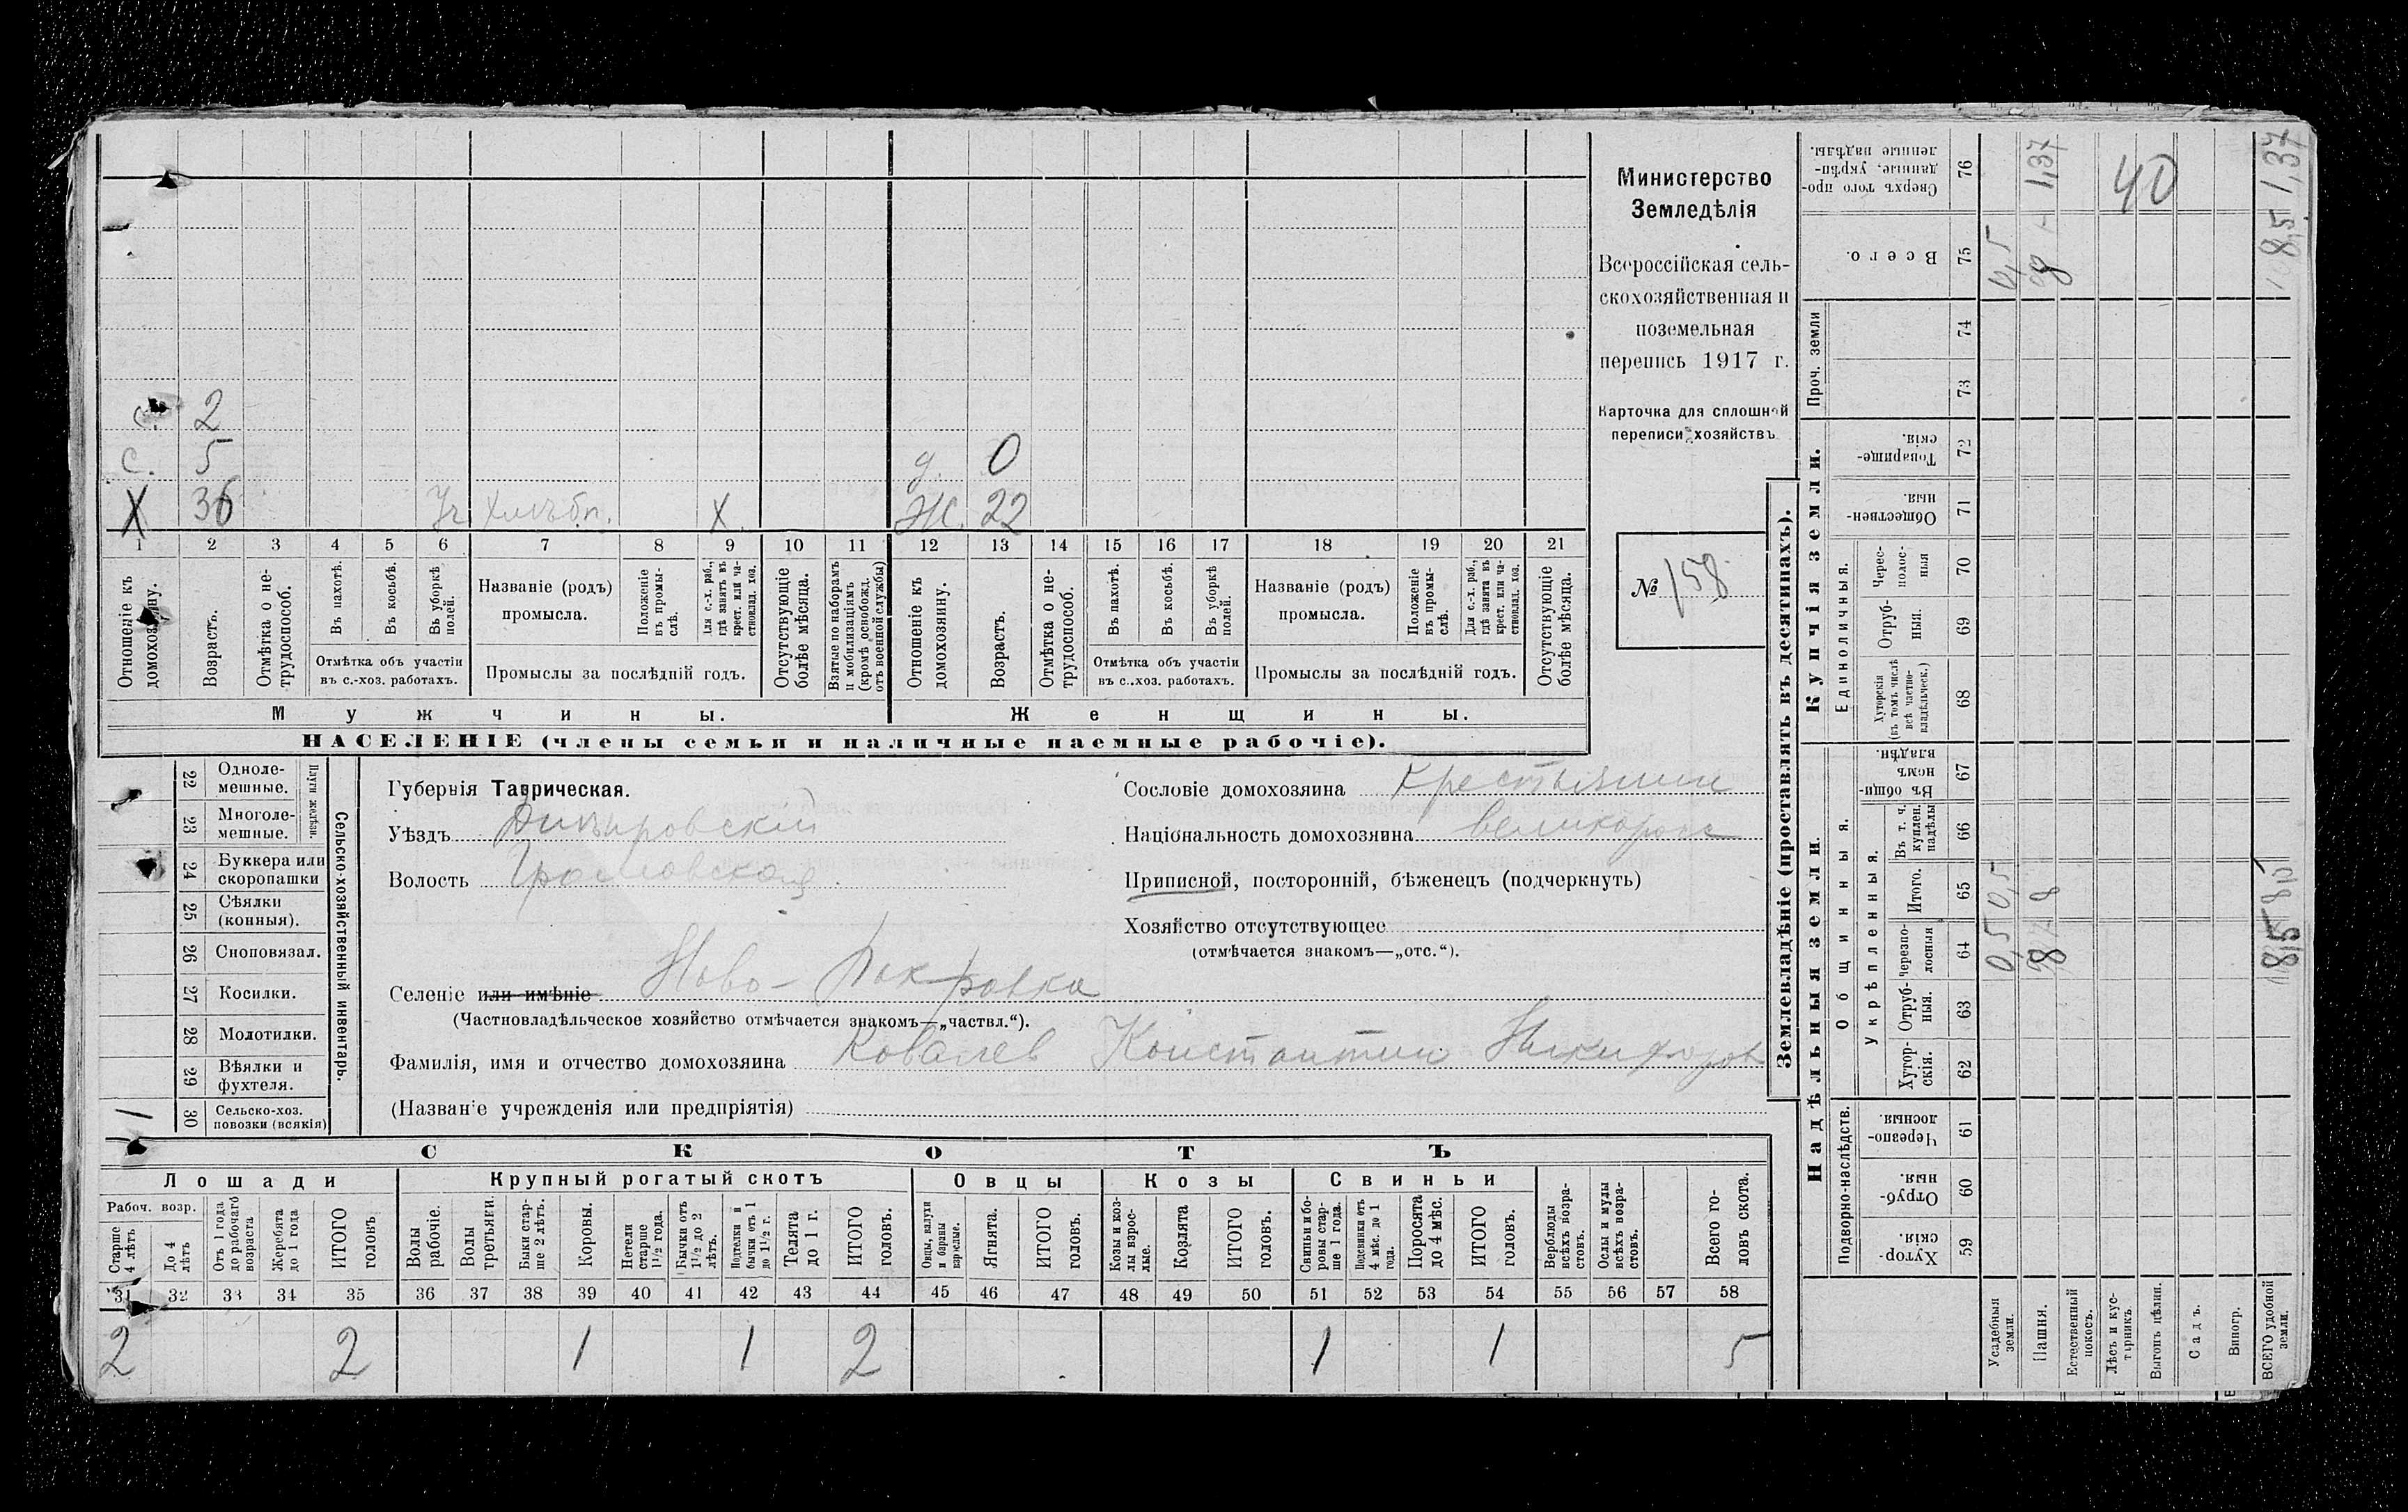 с. 2
с. 5 д. 0
Х 36 Уч. Хлѣбп. Х. Ж. 22
1 2 3 4 5 6 7 8 9 10 11 12 13 14 15 16 17 18 19 20 21
Отношеніе къ домохозяину.
Возрастъ.
Отмѣтка о не-
трудоспособ.
Въ пахотѣ.
Въ косьбѣ.
Въ уборкѣ
полей.
Отмѣтка объ участіи
въ с.-хоз. работахъ.
Названіе (родъ)
промысла.
Положеніе
въ промы-
слѣ.
Для с.-х. раб.,
гдѣ занятъ въ
крест. или ча-
стновлад. хоз.
Промыслы за послѣдній годъ.
Отсутствующіе
болѣе мѣсяца.
Взятые по наборамъ
и мобилизаціямъ
(кромѣ освобожд.
отъ военной службы)
Отношеніе къ
домохозяину.
Возрастъ.
Отмѣтка о не-
трудоспособ.
Въ пахотѣ.
Въ косьбѣ.
Въ уборкѣ
полей.
Отмѣтка объ участіи
въ с..хоз. работахъ.
Названіе (родъ)
промысла.
Положеніе
въ промы-
слѣ.
Для с.-х. раб.,
гдѣ занята въ
крест. или ча-
стновлад. хоз.
Промыслы за послѣдній годъ.
Отсутствующіе
болѣе мѣсяца.
Мужчины. Женщины.
НАСЕЛЕНІЕ (члены семьи и наличные наемные рабочіе).
Министерство
Земледѣлія
Всероссійская сель-
скохозяйственная и
поземельная
перепись 1917 г.
Карточка для сплошной
переписи хозяйствъ
№ 158
22 Одноле-
мешные.
23 Многоле-
мешные.
Плуги желѣзн.
24 Буккера или
скоропашки
25 Сѣялки
(конныя).
26 Сноповязал.
27 Косилки.
28 Молотилки.
29 Вѣялки и
фухтеля.
1 30 Сельско-хоз.
повозки (всякія)
Сельско-хозяйственный инвентарь.
Губернія Таврическая.
Уѣздъ Днѣпровскій
Волость
Селеніе или имѣніе Ново-Покровка
(Частновладѣльческое хозяйство отмѣчается знакомъ—„частвл.“).
Фамилія, имя и отчество домохозяина Ковалев Константин Никифоров
(Названіе учрежденія или предпріятія)
Сословіе домохозяина крестьянин
Національность домохозяина великоросс
Приписной, посторонній, бѣженецъ (подчеркнуть)
Хозяйство отсутствующее
(отмѣчается знакомъ—„отс.“).
СКОТЪ
Лошади Крупный рогатый скотъ Овцы Козы Свиньи
Рабоч. возр.
Старше
4 лѣтъ
До 4
лѣтъ
Отъ 1 года
до рабочаго
возраста
Жеребята
до 1 года
ИТОГО
головъ
Волы
рабочіе.
Волы
третьяки.
Быки стар-
ше 2 лѣтъ.
Коровы.
Нетели
старше
1½ года.
Бычки отъ
1½ до 2
лѣтъ.
Подтелки и
бычки отъ 1
до 1½ г.
Телята
до 1 г.
ИТОГО
головъ.
Овцы, валухи
и бараны
взрослые.
Ягнята.
ИТОГО
головъ.
Козы и коз-
лы взрос-
лые.
Козлята
ИТОГО
головъ.
Свиньи и бо-
ровы стар-
ше 1 года.
Подсвинки отъ
4 мѣс. до 1
года.
Поросята
до 4 мѣс.
ИТОГО
головъ.
Верблюды
всѣхъ возра-
стовъ.
Ослы и мулы
всѣхъ возра-
стовъ.
Всего го-
ловъ скота.
31 32 33 34 35 36 37 38 39 40 41 42 43 44 45 46 47 48 49 50 51 52 53 54 55 56 57 58
2 2 1 1 2 1 1 5
Землевладѣніе (проставлять въ десятинахъ).
Надѣльныя земли.
Подворно-наслѣдств.
Хутор-
скія. 59
Отруб-
ныя. 60
Черезпо-
лосныя 61
Общинныя.
Укрѣпленныя.
Хутор-
скія. 62
Отруб-
ныя. 63
Черезпо-
лосныя 64
Итого. 65
Въ т. ч.
куплен.
надѣлы 66
Въ общин-
номъ
владѣн. 67
Купчія земли.
Единоличныя.
Хуторскія
(въ томъ числѣ
всѣ частно-
владѣльческ.) 68
Отруб-
ныя. 69
Черес-
полос-
ныя 70
Обществен-
ныя. 71
Товарище-
скія. 72
Проч. земли
73 74
Всего. 75
Сверхъ того про-
данные, укрѣп-
ленные надѣлы. 76
Усадебныя
земли. 0,5 0,5 0,5
Пашня. 8 8 8 1,37
Естественный
покосъ.
Лѣсъ и кус-
тарникъ. 40
Выгонъ цѣлин.
Садъ.
Виногр.
ВСЕГО удобной
земли. 8,5 8,5 8,5 1,37